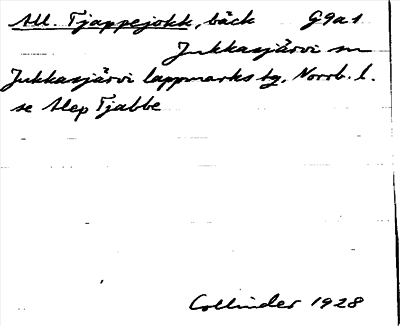 All. Tjappejokk, bäck G9a1
Jukkasjärvi sn
Jukkasjärvi lappmarks bg, Norrb. l.
se Alep Tjabbe
Collinder 1928